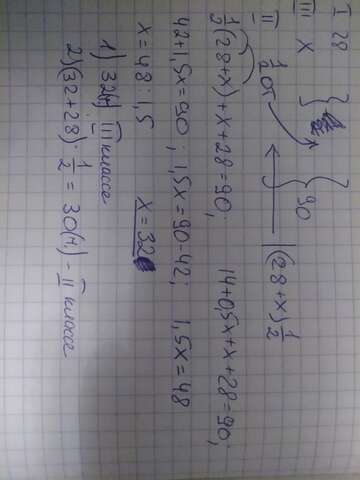 I 28
II 1/2 от
III x
} 90
(28+x) 1/2
1/2(28+x)+x+28=90;
14+0,5x+x+28=90;
42+1,5x=90; 1,5x=90-42; 1,5x=48
x=48:1,5 x=32
1) 32ч III классе
2) (32+28)·1/2=30(ч.)-II классе